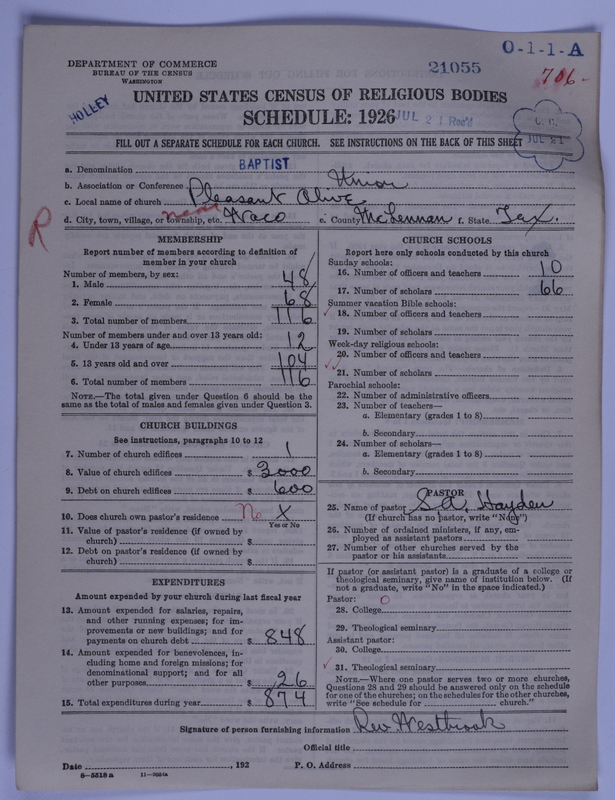 O-1-1-A
DEPARTMENT OF COMMERCE
BUREAU OF THE CENSUS
WASHINGTON
21055
706-
HOLLEY
UNITED STATES CENSUS OF RELIGIOUS BODIES
SCHEDULE: 1926
JUL 21 Rec'd
FILL OUT A SEPARATE SCHEDULE FOR EACH CHURCH. SEE INSTRUCTIONS ON THE BACK OF THIS SHEET
JUL 21
a. Denomination BAPTIST
b. Association or Conference Union
c. Local name of church Pleasant Olive
d. City, town, village, or township, etc. Waco e. County McLennan f. State Tex.
MEMBERSHIP
Report number of members according to definition of
member in your church
Number of members, by sex:
1. Male 48
2. Female 68
3. Total number of members 116
Number of members under and over 13 years old:
4. Under 13 years of age 12
5. 13 years old and over 104
6. Total number of members 116
NOTE.—The total given under Question 6 should be the
same as the total of males and females given under Question 3.
CHURCH BUILDINGS
See instructions, paragraphs 10 to 12
7. Number of church edifices 1
8. Value of church edifices $ 3000
9. Debt on church edifices $ 600
10. Does church own pastor's residence No X
Yes or No
11. Value of pastor's residence (if owned by
church) $
12. Debt on pastor's residence (if owned by
church) $
EXPENDITURES
Amount expended by your church during last fiscal year
13. Amount expended for salaries, repairs,
and other running expenses; for im-
provements or new buildings; and for
payments on church debt $ 848
14. Amount expended for benevolences, in-
cluding home and foreign missions; for
denominational support; and for all
other purposes $ 26
15. Total expenditures during year $ 874
CHURCH SCHOOLS
Report here only schools conducted by this church
Sunday schools:
16. Number of officers and teachers 10
17. Number of scholars 66
Summer vacation Bible schools:
18. Number of officers and teachers
19. Number of scholars
Week-day religious schools:
20. Number of officers and teachers
21. Number of scholars
Parochial schools:
22. Number of administrative officers
23. Number of teachers—
a. Elementary (grades 1 to 8)
b. Secondary
24. Number of scholars—
a. Elementary (grades 1 to 8)
b. Secondary
PASTOR
25. Name of pastor S.A. Hayden
(If church has no pastor, write "None")
26. Number of ordained ministers, if any, em-
ployed as assistant pastors
27. Number of other churches served by the
pastor or his assistants
If pastor (or assistant pastor) is a graduate of a college or
theological seminary, give name of institution below. (If
not a graduate, write "No" in the space indicated.)
Pastor: 0
28. College
29. Theological seminary
Assistant pastor:
30. College
31. Theological seminary
NOTE.—Where one pastor serves two or more churches,
Questions 28 and 29 should be answered only on the schedule
for one of the churches; on the schedules for the other churches,
write "See schedule for church."
Signature of person furnishing information Rev Westbrook
Official title
Date , 192 P. O. Address
8-5518a 11-9054a